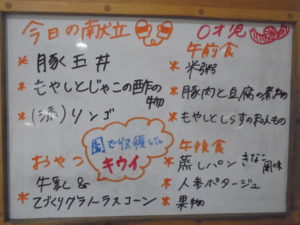 今日の献立
* 豚玉丼
* もやしとじゃこの酢の
物
* (添)リンゴ
おやつ
園で収穫した
キウイ
* 牛乳&
* てづくりグラノーラスコーン
0才児
午前食
* 米粥
* 豚肉と豆腐の煮物
* もやしとしらすの和えもの
午後食
* 蒸しパン きなこ
風味
* 人参ポタージュ
* 果物